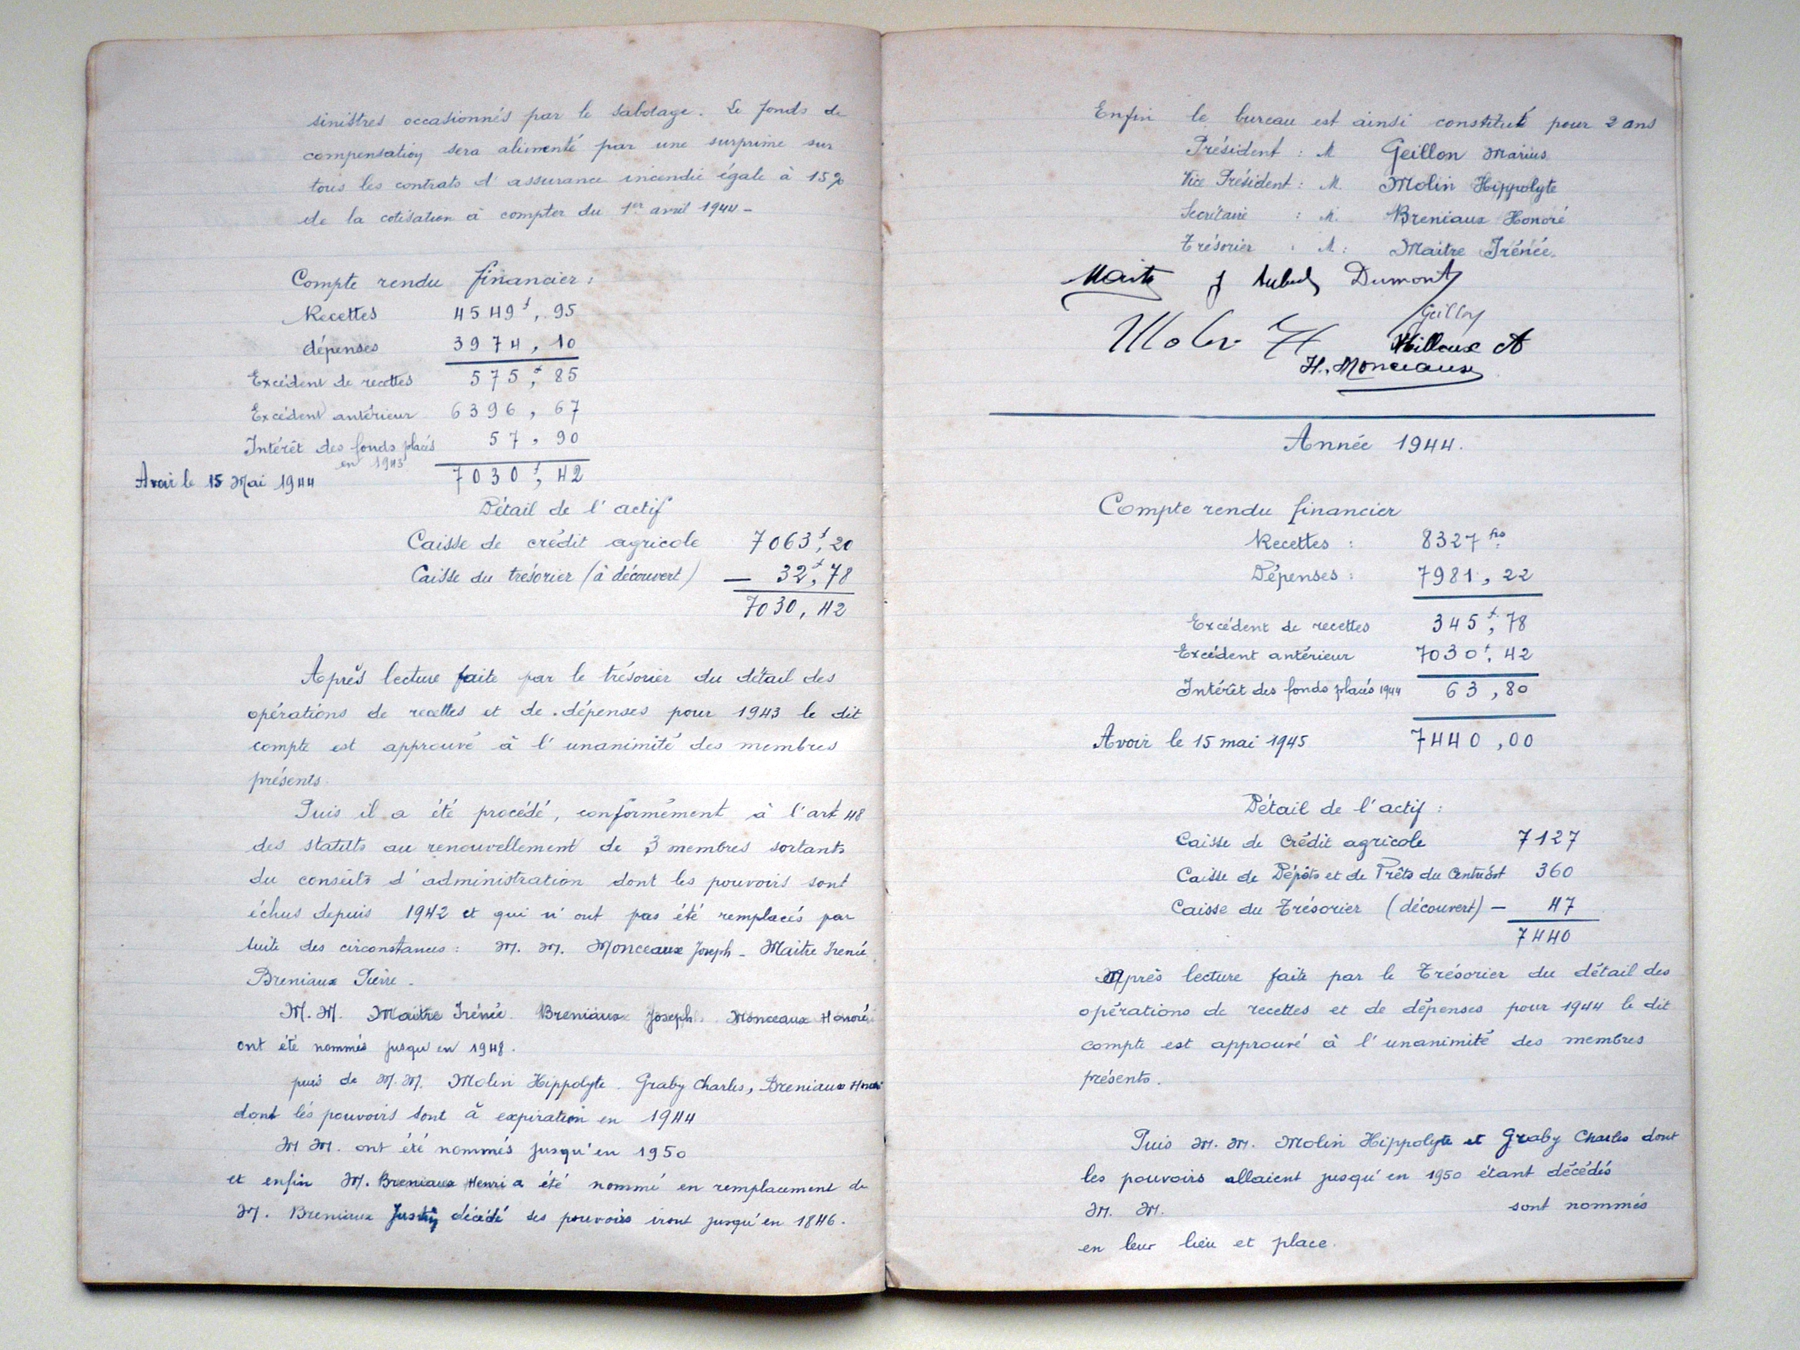 sinistres occasionnés par le sabotage. Le fonds de
compensation sera alimenté par une surprime sur
tous les contrats d'assurance incendie égale à 15%
de la cotisation à compter du 1er avril 1944 -
Compte rendu financier :
Recettes 4549f, 95
dépenses 3974, 10
Excédent de recettes 575f, 85
Excédent antérieur 6396, 67
Intérêt des fonds placés 57, 90
en 1943
Avoir le 15 Mai 1944 7030f, 42
Détail de l'actif
Caisse de crédit agricole 7063f, 20
Caisse du trésorier (à découvert) — 32f, 78
7030, 42
Après lecture faite par le trésorier du détail des
opérations de recettes et de dépenses pour 1943 le dit
compte est approuvé à l'unanimité des membres
présents.
Puis il a été procédé, conformément à l'art 48
des statuts au renouvellement de 3 membres sortants
du conseils d'administration dont les pouvoirs sont
échus depuis 1942 et qui n'ont pas été remplacés par
suite des circonstances : M. M. Monceaux Joseph - Maitre Irenée
Breniaux Pierre -
M. M. Maitre Irénée Breniaux Joseph Monceaux Honoré
ont été nommés jusqu'en 1948.
puis de M. M. Molin Hippolyte. Graby Charles, Breniaux Honoré
dont les pouvoirs sont à expiration en 1944
M M. ont été nommés jusqu'en 1950
et enfin M. Breniaux Henri a été nommé en remplacement de
M. Breniaux Justin décédé ses pouvoirs iront jusqu'en 1846.
Enfin le bureau est ainsi constitué pour 2 ans
Président : M Geillon Marius
Vice Président : M. Molin Hippolyte
Secrétaire : M. Breniaux Honoré
Trésorier : M : Maitre Irénée.
Maitre J Dumont
Geillon
Molin H A
H. Monceaux
Année 1944.
Compte rendu financier
Recettes : 8327 frs
Dépenses : 7981, 22
Excédent de recettes 345f, 78
Excédent antérieur 7030f, 42
Intérêt des fonds placés 1944 63, 80
Avoir le 15 mai 1945 7440, 00
Détail de l'actif :
Caisse de Crédit agricole 7127
Caisse de Dépôts et de Prêts du 360
Caisse du Trésorier (découvert) — 47
7440
Après lecture faite par le Trésorier du détail des
opérations de recettes et de dépenses pour 1944 le dit
compte est approuvé à l'unanimité des membres
présents.
Puis M. M. Molin Hippolyte et Graby Charles dont
les pouvoirs allaient jusqu'en 1950 étant décédés
M. M. sont nommés
en leur lieu et place.